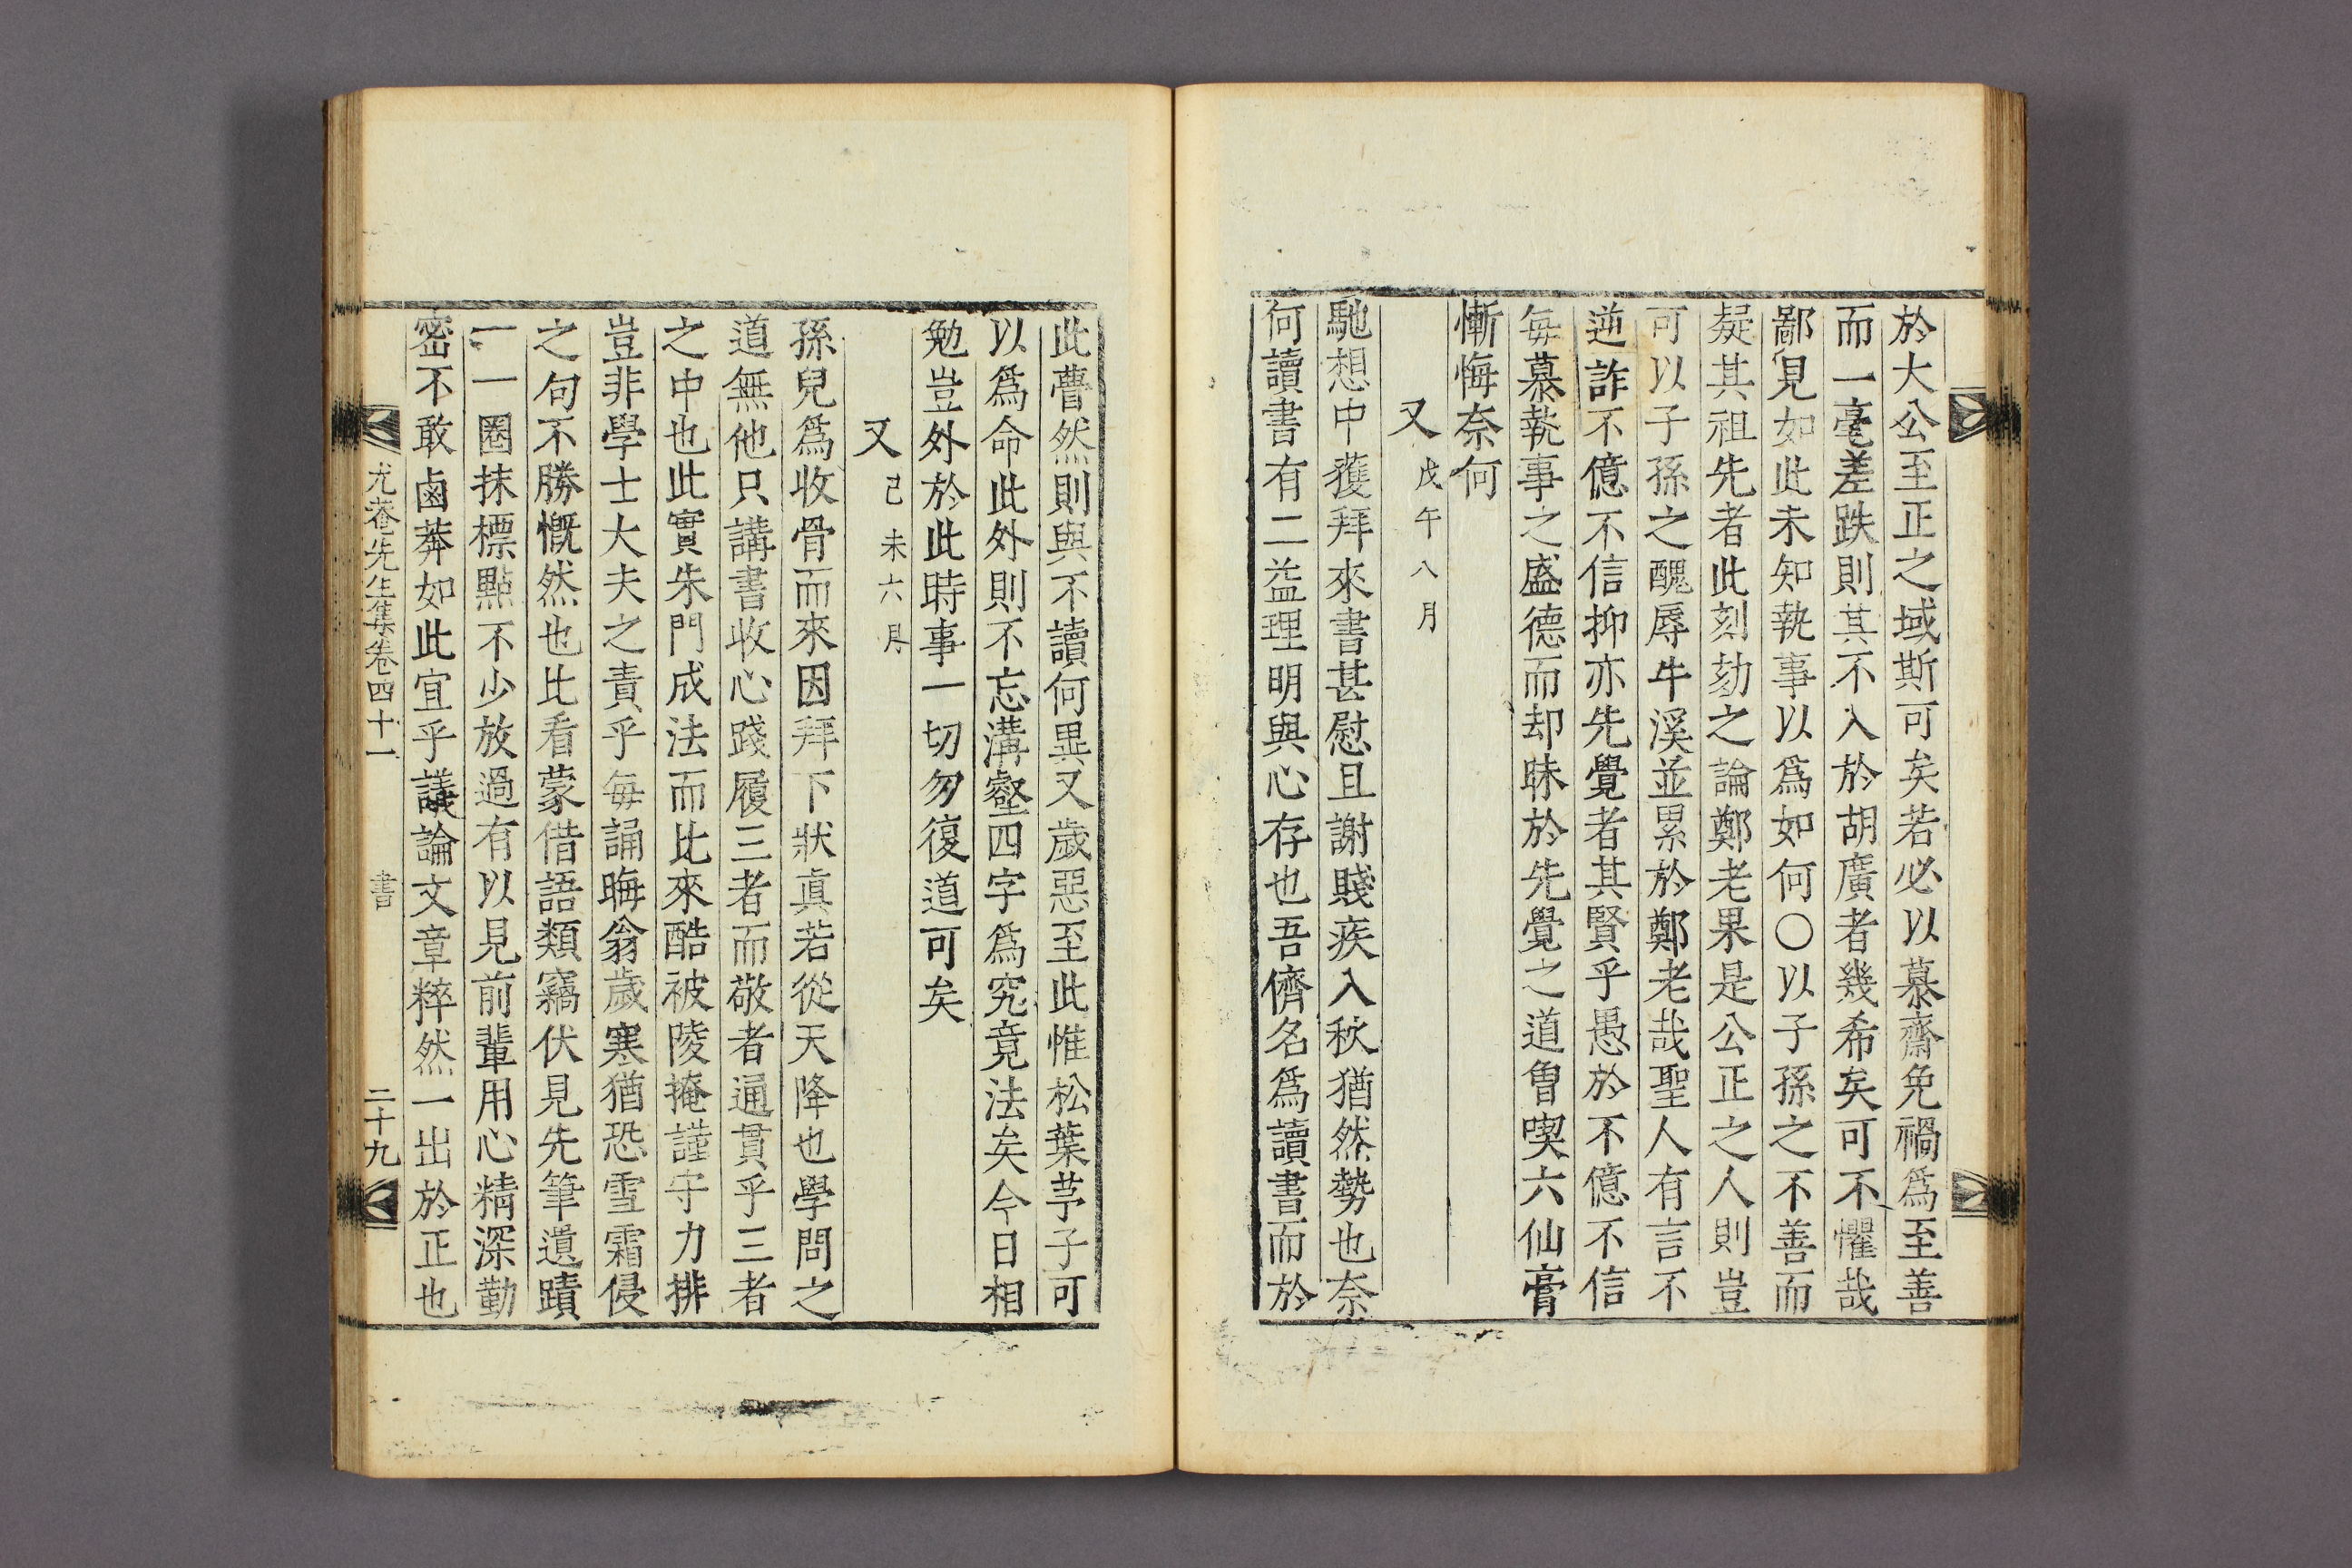 於大公至正之域斯可矣若必以慕齋免禍爲至善
而一毫差跌則其不入於胡廣者幾希矣可不懼哉
鄙見如此未知執事以爲如何○以子孫之不善而
疑其祖先者此刻劾之論鄭老果是公正之人則豈
可以子孫之醜辱牛溪並累於鄭老哉聖人有言不
逆詐不億不信抑亦先覺者其賢乎愚於不億不信
每慕執事之盛德而却昧於先覺之道曾喫六仙膏
慚悔奈何
又 戊午八月
馳想中獲拜來書甚慰且謝賤疾入秋猶然勢也奈
何讀書有二益理明與心存也吾儕名爲讀書而於
此瞢然則與不讀何異又歲惡至此惟松葉芧子可
以爲命此外則不忘溝壑四字爲究竟法矣今日相
勉豈外於此時事一切勿復道可矣
又 己未六月
孫兒爲收骨而來因拜下狀眞若從天降也學問之
道無他只講書收心踐履三者而敬者通貫乎三者
之中也此實朱門成法而比來酷被陵掩謹守力排
豈非學士大夫之責乎每誦晦翁歲寒猶恐雪霜侵
之句不勝慨然也比看蒙借語類竊伏見先筆遺蹟
一一圈抹標點不少放過有以見前輩用心精深勤
密不敢鹵莽如此宜乎議論文章粹然一出於正也
尤菴先生集卷四十一 書 二十九